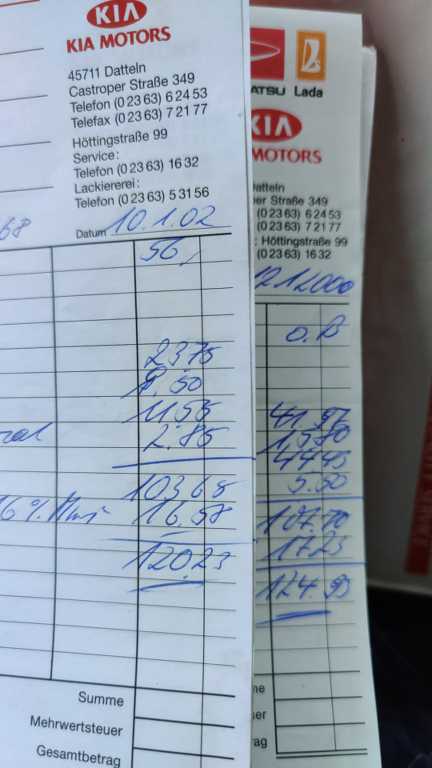 KIA
KIA MOTORS
45711 Datteln
Castroper Straße 349
Telefon (0 23 63) 6 24 53
Telefax (0 23 63) 7 21 77
Höttingstraße 99
Service:
Telefon (0 23 63) 16 32
Lackiererei:
Telefon (0 23 63) 5 31 56
68
Datum 10.1.02
56,
23.75
9.50
11.55
2.85
103.68
16% 16.58
120.23
Summe
Mehrwertsteuer
Gesamtbetrag
ATSU Lada
KIA
MOTORS
Datteln
er Straße 349
(0 23 63) 6 24 53
(0 23 63) 7 21 77
: Höttingstraße 99
(0 23 63) 16 32
o.B
41.97
15.80
44.43
5.50
107.70
17.23
124.93
me
er
ag